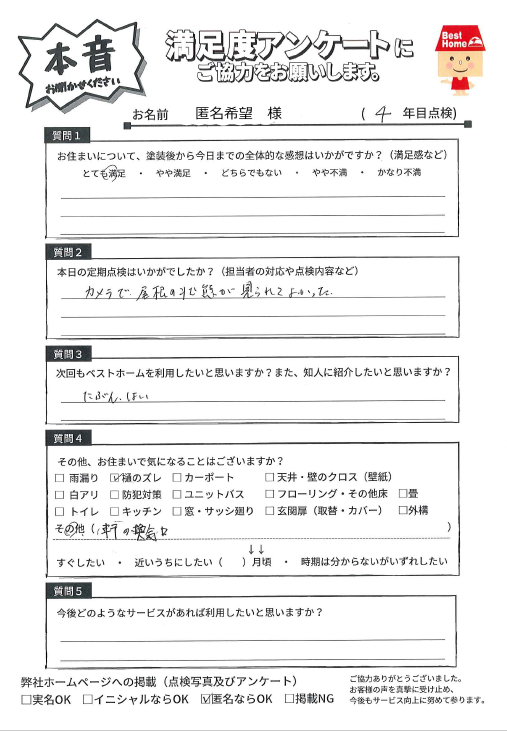 本音
お聞かせください
満足度アンケートに
ご協力をお願いします。
Best Home
お名前 匿名希望 様 ( 4 年目点検)
質問1
お住まいについて、塗装後から今日までの全体的な感想はいかがですか？（満足感など）
とても満足 ・ やや満足 ・ どちらでもない ・ やや不満 ・ かなり不満
質問2
本日の定期点検はいかがでしたか？（担当者の対応や点検内容など）
カメラで、屋根の状態が見られてよかった。
質問3
次回もベストホームを利用したいと思いますか？また、知人に紹介したいと思いますか？
たぶん、はい
質問4
その他、お住まいで気になることはございますか？
□ 雨漏り ☑樋のズレ □ カーポート □ 天井・壁のクロス（壁紙）
□ 白アリ □ 防犯対策 □ ユニットバス □ フローリング・その他床 □畳
□ トイレ □ キッチン □ 窓・サッシ廻り □ 玄関扉（取替・カバー） □外構
その他（ 軒の換気口 ）
↓↓
すぐしたい ・ 近いうちにしたい（ ）月頃 ・ 時期は分からないがいずれしたい
質問5
今後どのようなサービスがあれば利用したいと思いますか？
弊社ホームページへの掲載（点検写真及びアンケート）
□実名OK □イニシャルならOK ☑匿名ならOK □掲載NG
ご協力ありがとうございました。
お客様の声を真摯に受け止め、
今後もサービス向上に努めて参ります。